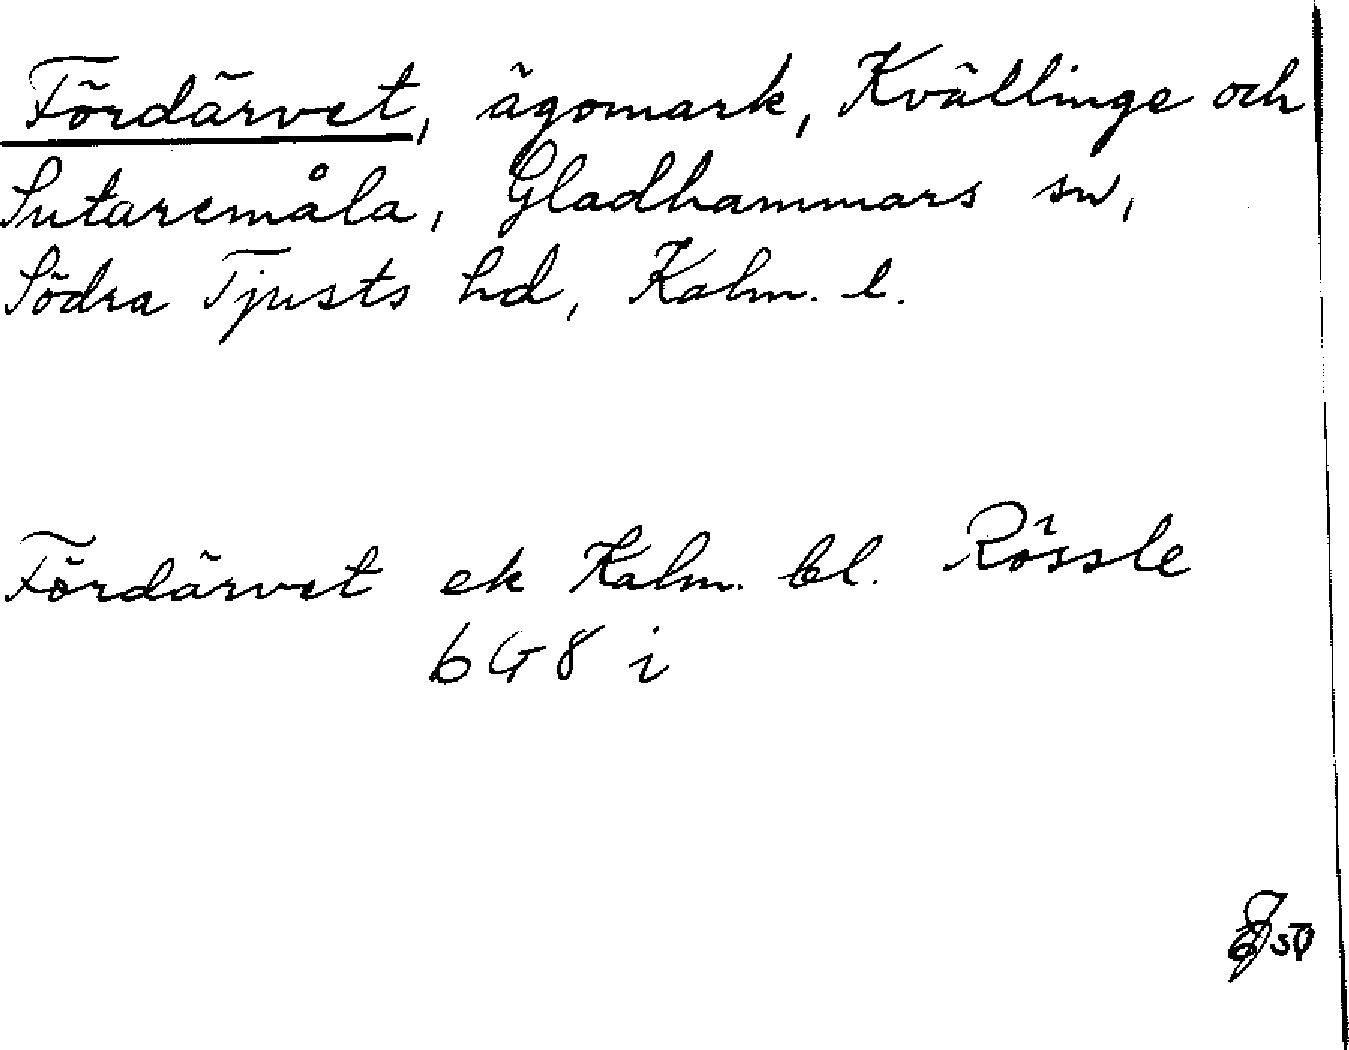 Fördärvet, ägomark, Kvällinge och
Sutaremåla, Gladhammars sn,
Södra Tjusts hd, Kalm. l.
Fördärvet ek Kalm. bl. Rössle
6G8 i